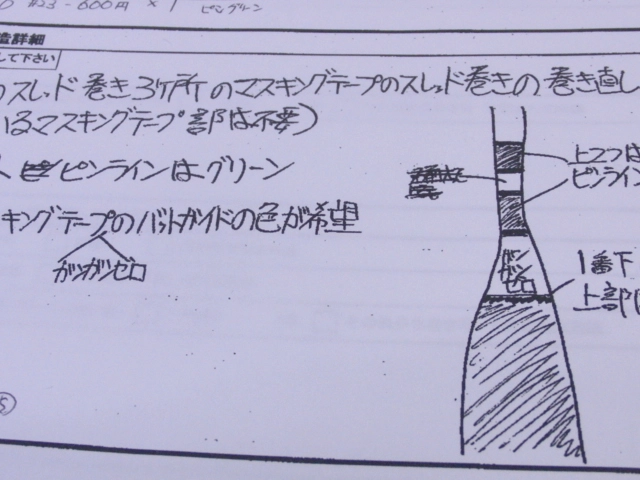 023-600円 × 1
ピングリーン
造詳細
して下さい
のスレッド巻き3ヶ所のマスキングテープのスレッド巻きの巻き直し
いるマスキングテープ部は不要)
ピンラインはグリーン
キングテープのバットガイドの色が希望
ガンガンゼロ
上2つは
ピンライン
ガン
ガン
ゼロ
1番下
上部
⑤